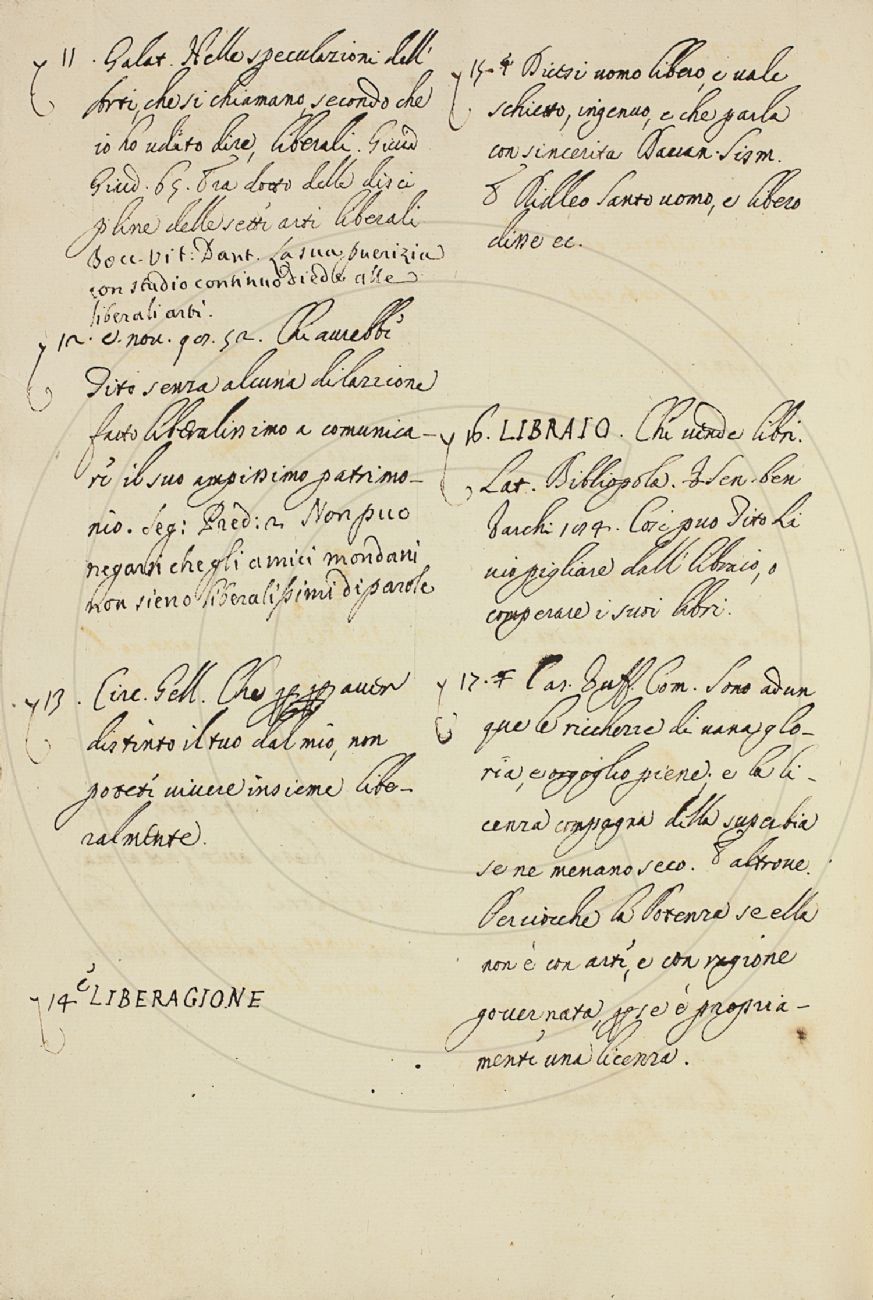 11 . Galat. Nelle speculazioni dell'
Arti, che si chiamano, secondo che
io ho udito dire, liberali. Guid
Giud. 65. Era dotto delle disci
pline delle setti arti liberali
Bocc. Vit: Dant. La sua puerizia
con studio continuo diede alle
liberali arti.
12 . E. nov. 98. 52. Chi avrebbe
Tito senza alcuna dilazione
fatto liberalissimo a comunica-
re il suo ampissimo patrimo-
nio. Seg: Pred: 2 Non puo
negarsi che gli amici mondani
non sieno liberalissimi di parole
13 . Circ. Gell. Che aver
distinto il tuo dal mio, non
poteti vivere insieme libe-
ralmente.
14 E LIBERAGIONE
15. Dicesi uomo libero, e vale
schietto, ingenuo, e che parla
con sincerita Davan. Sism.
E Ridleo Santo uomo, e libero
disse ec.
16. LIBRAIO. Chi vende libri.
Lat. Bibliopola. Sen. ben
Varchi 194. Così puo Tito Li
vio pigliare dall' libraio, o
comperare i suoi libri.
17. Com. Sono adun
que le ricchezze di vana glo-
ria, e orgoglio piene; e la li-
cenza compagna della superbia
se ne menano seco. E altrove.
Perciocche la Potenza se ella
non è con arte, e con ragione
governata, se è propria-
mente una licenza.